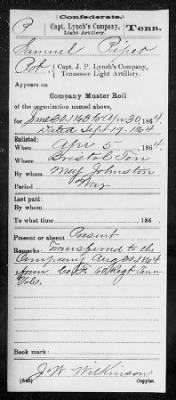 (Confederate.)
P Capt. Lynch's Company, Tenn.
Light Artillery.
Samuel Piper
Pvt, Capt. J. P. Lynch's Company,
Tennessee Light Artillery.
Appears on
Company Muster Roll
of the organization named above,
for June 30, 1863 to Apr 30, 1864.
Dated Sept 17, 1864
Enlisted:
When Apr 5, 186 .
Where Bristol Ten
By whom Maj Johnston
Period War
Last paid:
By whom
To what time , 186 .
Present or absent Present
Remarks: Transferred to the
Company Aug 30 1864
from 60 Regt Tenn
Vols.
Book mark:
J. W. Wilkinson
Copyist.